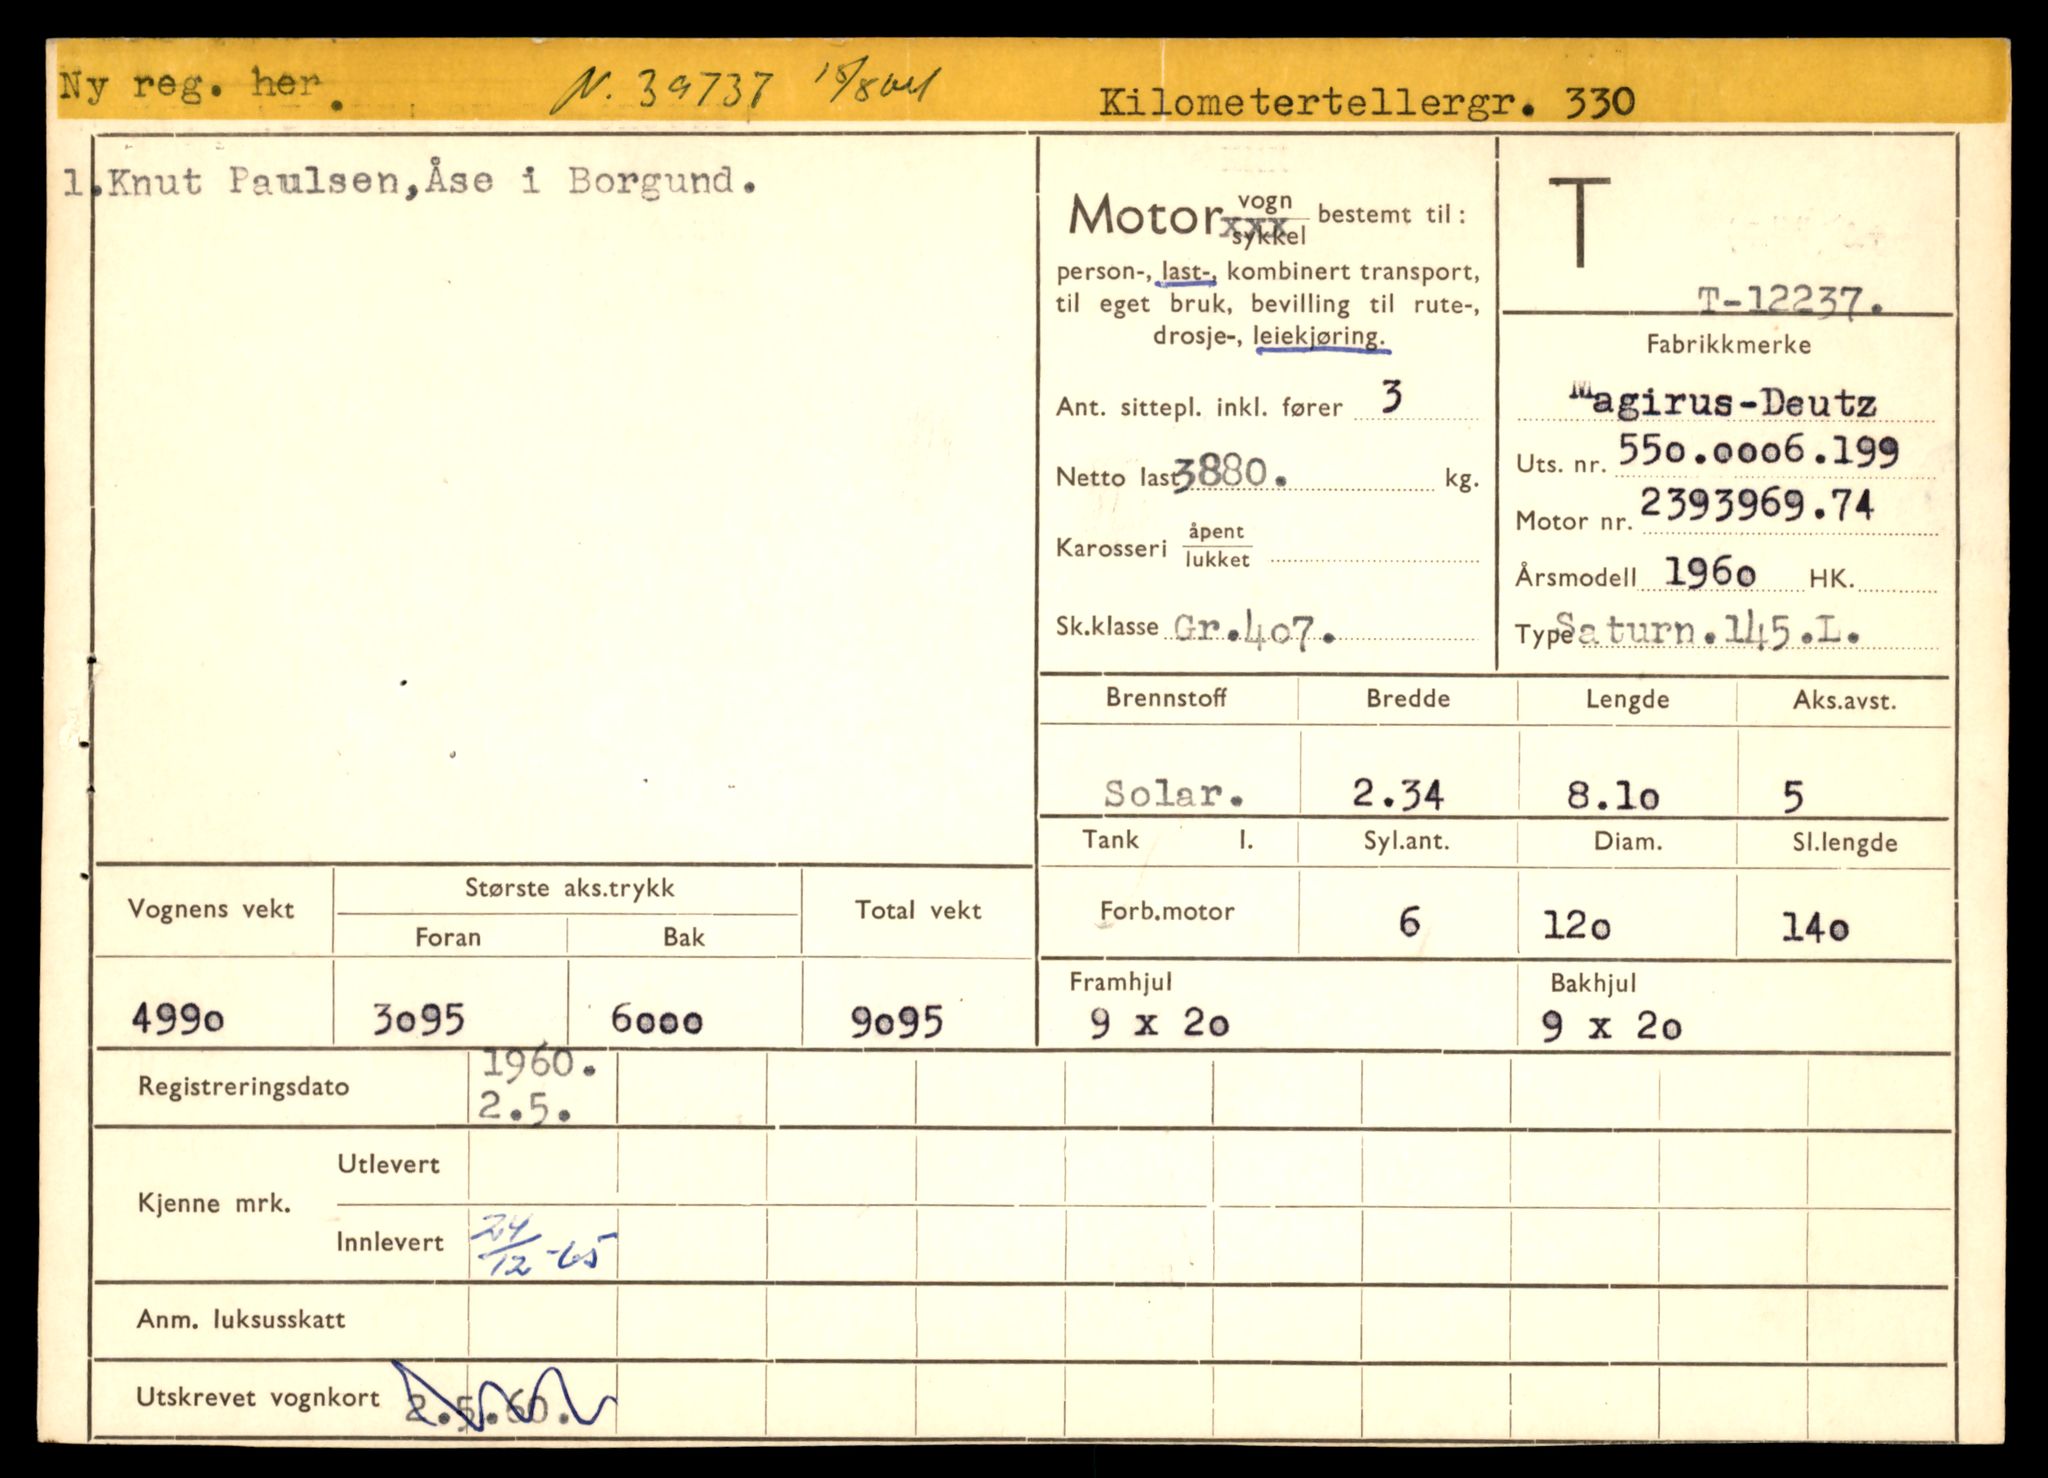 Ny reg. her. N. 39737
Kilometertellergr. 330
1.Knut Paulsen,Åse i Borgund.
Motor vogn xxx sykkel bestemt til:
person-, last-, kombinert transport,
til eget bruk, bevilling til rute-,
drosje-, leiekjøring.
Ant. sittepl. inkl. fører 3
Netto last 3880. kg.
Karosseri åpent lukket
Sk.klasse Gr.407.
T
T-12237.
Fabrikkmerke
Magirus-Deutz
Uts. nr. 550.0006.199
Motor nr. 2393969.74
Årsmodell 1960 HK.
Type Saturn.145.L.
Brennstoff Bredde Lengde Aks.avst.
Solar. 2.34 8.10 5
Tank l. Syl.ant. Diam. Sl.lengde
Forb.motor 6 120 140
Framhjul Bakhjul
9 x 20 9 x 20
Vognens vekt Største aks.trykk Total vekt
Foran Bak
4990 3095 6000 9095
Registreringsdato 1960.
2.5.
Kjenne mrk. Utlevert
Innlevert 24/12-65
Anm. luksusskatt
Utskrevet vognkort 2.5.60.